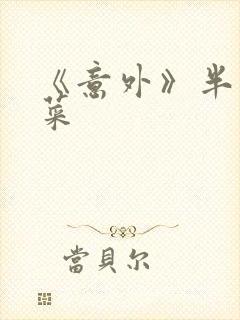 《意外》半
菜
當貝尔